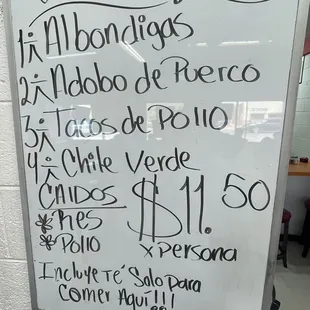 1 Albondigas
2 Adobo de Puerco
3 Tacos de Pollo
4 Chile Verde
CAIDOS
Res $11.50
Pollo xpersona
Incluye Té Solo para
comer Aquí!!!